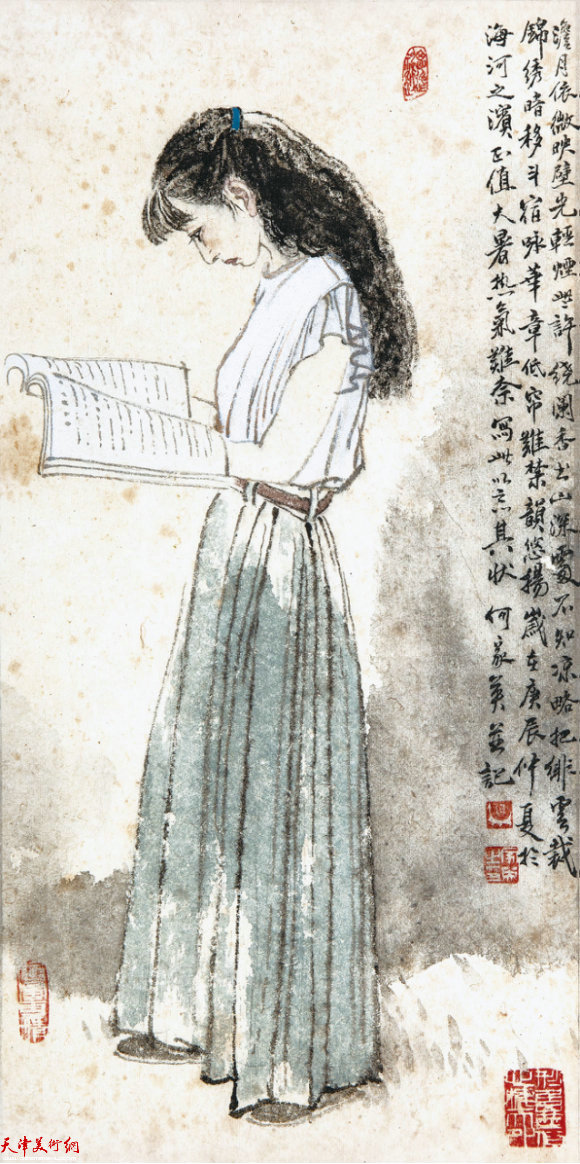 澹月依微映壁光輕煙些許繞闌香書山深處不知涼略把緋雲裁
錦绣暗移斗宿咏華章低帘難禁韻悠揚歲在庚辰仲夏於
海河之濱正值大暑热氣難奈寫此以忘其状 何家英並記
天津美術網